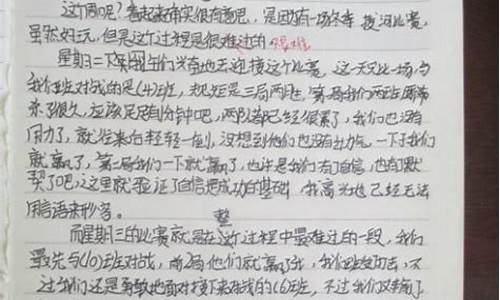 这个周呢?看起来确实很有意思,是因为有一场冬季拔河比赛,
虽然好玩,但是这个过程是很难过的 艰难
星期二下午同学们兴奋地去迎接这个比赛,这一天只比一场与
我们班对战的是(4)班,规矩是三局两胜,第一局我们两班
来了很久,应该足足有1分钟吧,两队都已经很累了,我们也没有
用力了,就往来自轻轻一倒,没想到他们也没有出力气,一下子我们
就赢了,第二局我们一下就赢了,也许是我们有了自信,也有了默
契了吧,这里就验证了自信是成功的基础,我高兴地已经无法
用言语来形容。
整
而星期三的比赛就是在这个过程中最难过的一段,我们
最先与(10)班对战,前两局他们就赢了我,我们班 不
过我们还是勇敢地面对接下来对战的(6)班,不过我们又输了